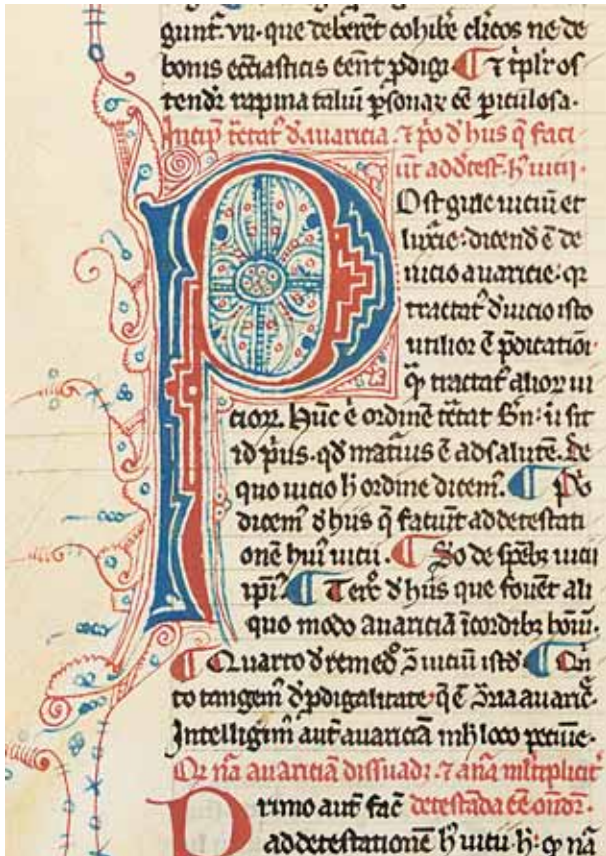 gunt̃. vii. que deberẽt cohibe᷑ cl̃icos ne de
bonis ecc̃iasticis eẽnt ꝓdigi ¶ ⁊ ip̃l'r os
tendit᷑ rapina taliũ ꝑsonaꝝ eẽ ꝑiculosa.
Incip̃ tc̃tat᷑ d̃ auaricia. ⁊ p̾o d̃ hiis q̃ faci
ũt ad detest. h' uicii.
Ost gule uiciũ et
luxc̃ie. dicendũ ẽ de
uicio auaricie. qz
tractat᷑ d̃ uicio isto
utilior ẽ p̃dicatiõi.
q̃ tractat᷑ alioꝝ ui
cioꝝ. Hũc ẽ ordinẽ tc̃tat sñ. ii sit
id p̾us. qd̃ magis ẽ ad salutẽ. De
quo uicio h̃ ordine dicem᷒. ¶ P̾o
dicem᷒ d̃ hiis q̃ faciũt ad detestati
onẽ hui᷒ uicii. ¶ S̾o de sp̃ebꝫ uicii
ip̃i᷒. ¶ Terc̾o d̃ hiis que fouẽt ali
quo modo auariciã ĩ cordibꝫ hoĩũ.
¶ Quarto d̃ remed̾o 9̃ uiciũ istd̃ ¶ Qui
to tangem᷒ d̃ ꝓdigalitate. q̃ ẽ 9̃ria auaric̃.
Intelligim᷒ aut̃ auariciã in h̾ loco pecuñe.
Qz nã auariciã dissuad᷑. ⁊ añã mĩtiplicit᷑
Primo aut̃ fac̃ detestãda eẽ ond̃r.
ad detestationẽ h' uicii h̾. qꝫ nã